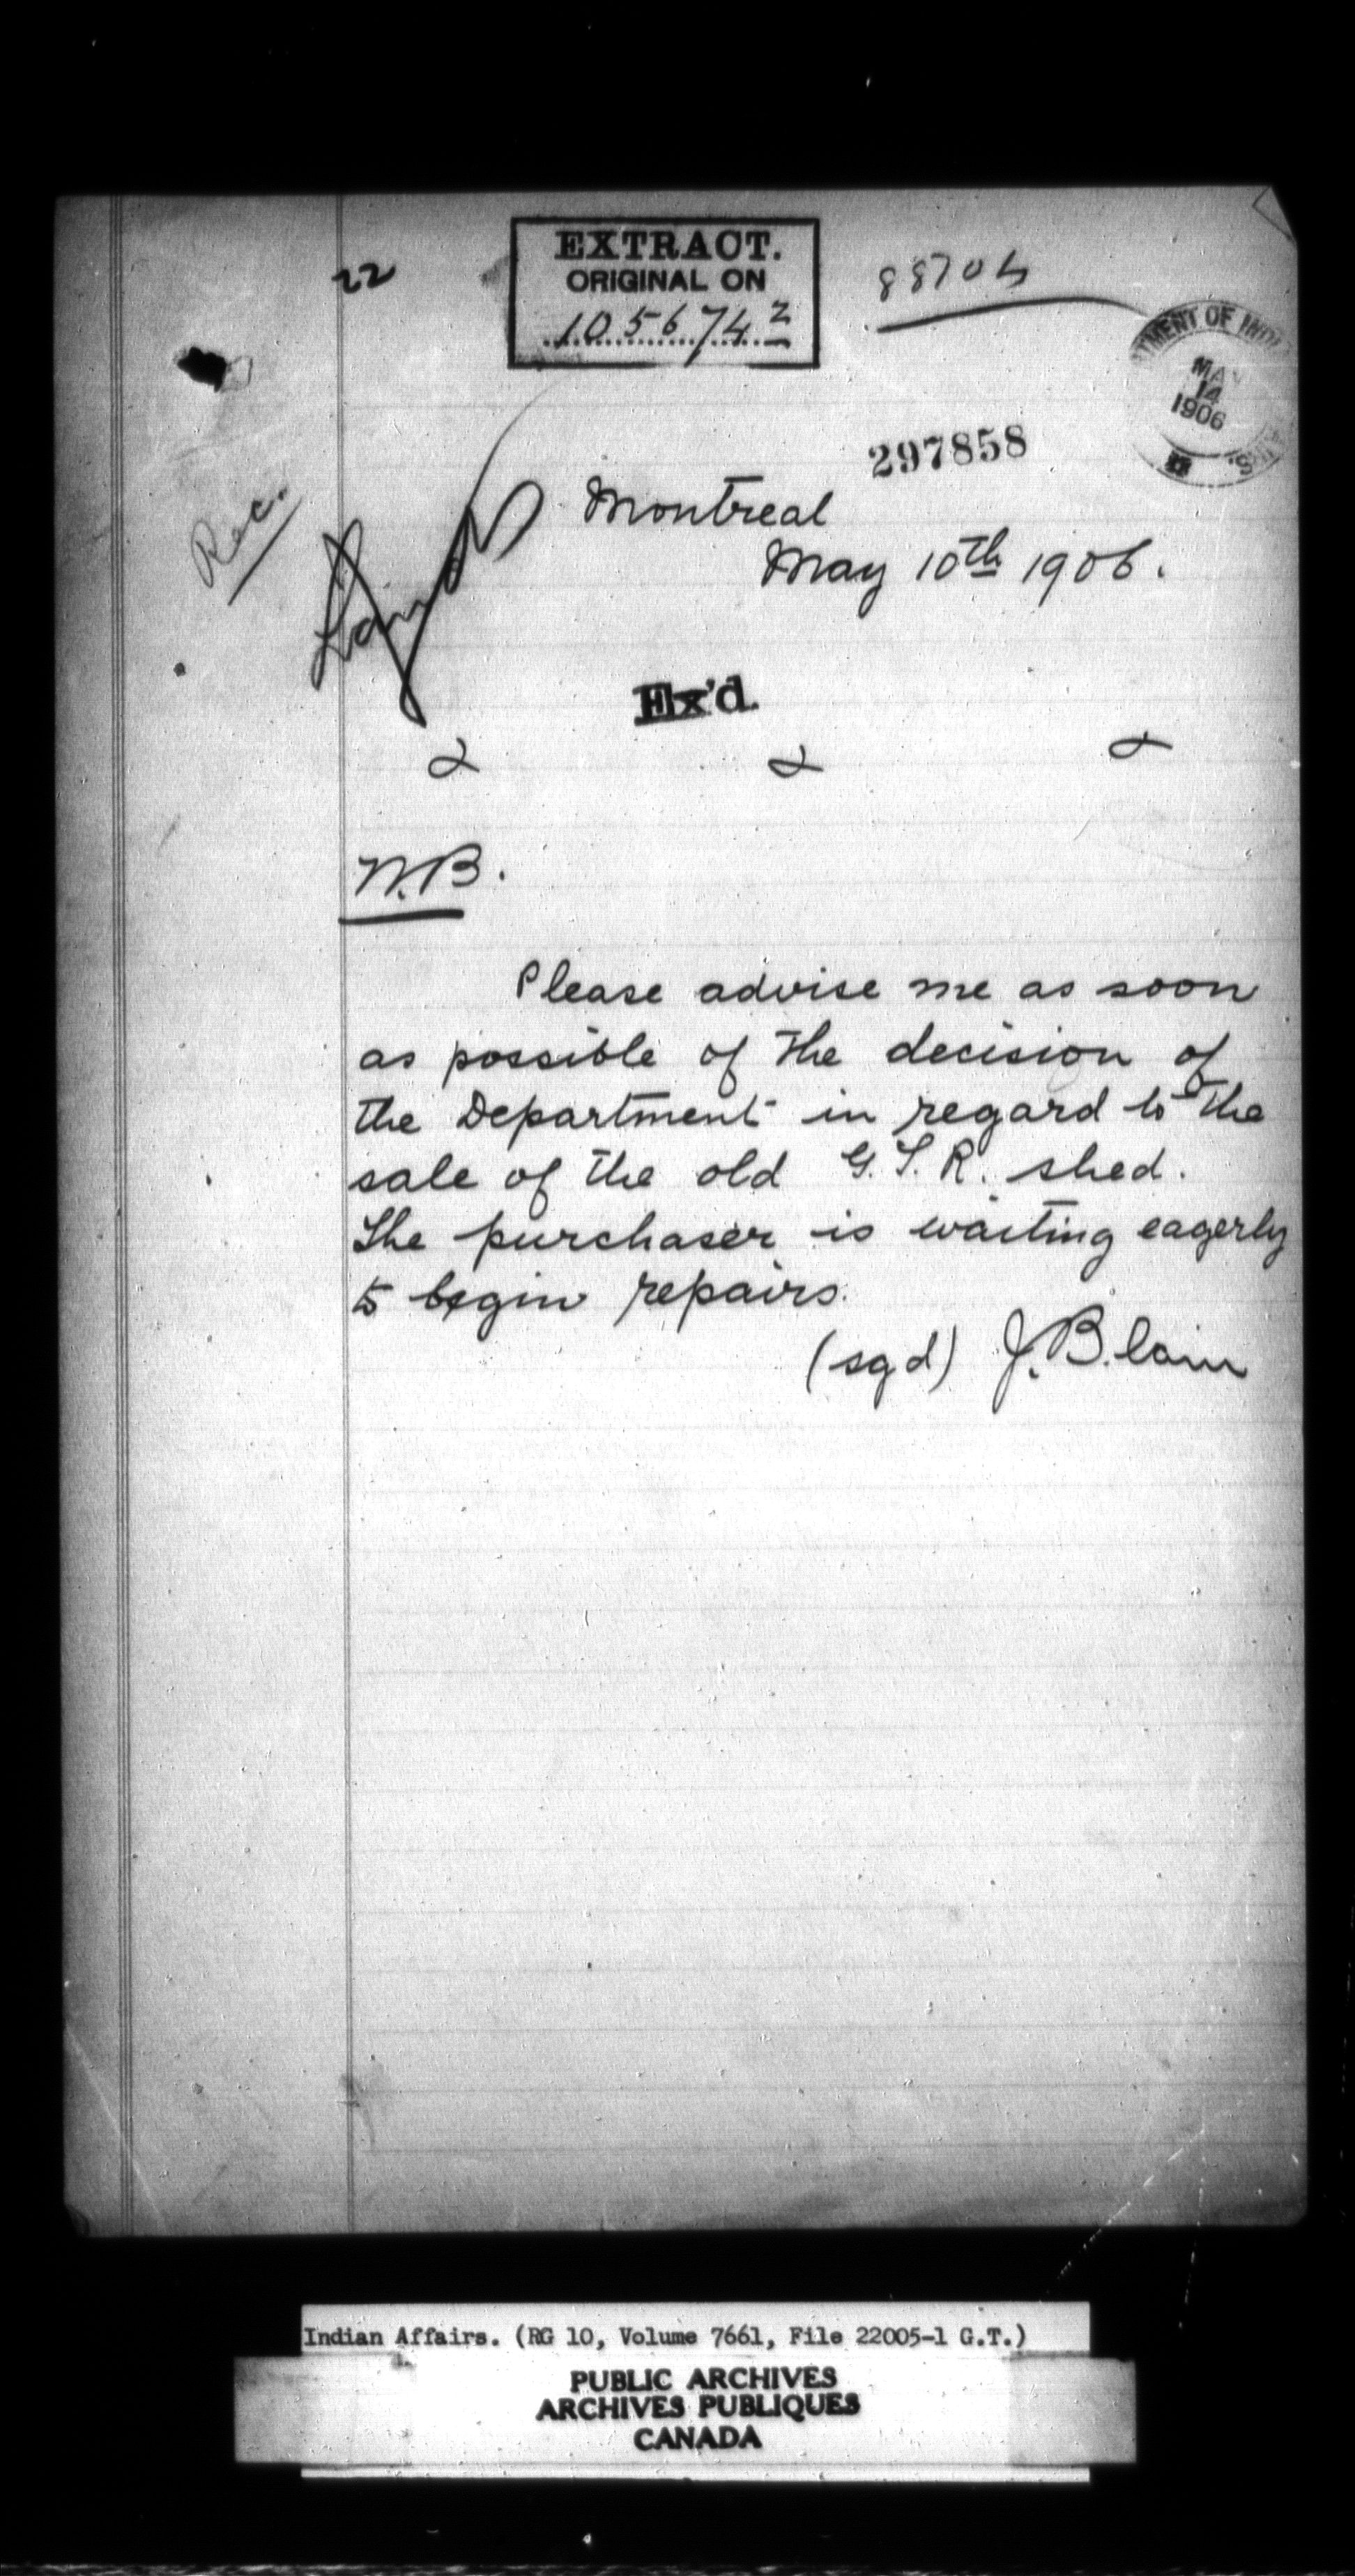 22
EXTRACT.
ORIGINAL ON
105674²
297858
MAY
14
1906
Rec.
Montreal
May 10th 1906.
Ex'd.
N.B.
Please advise me as soon
as possible of the decision of
the Department in regard to the
sale of the old G.T.R. shed.
The purchaser is waiting eagerly
to begin repairs.
(sgd) J. Blain
Indian Affairs. (RG 10, Volume 7661, File 22005-1 G.T.)
PUBLIC ARCHIVES
ARCHIVES PUBLIQUES
CANADA